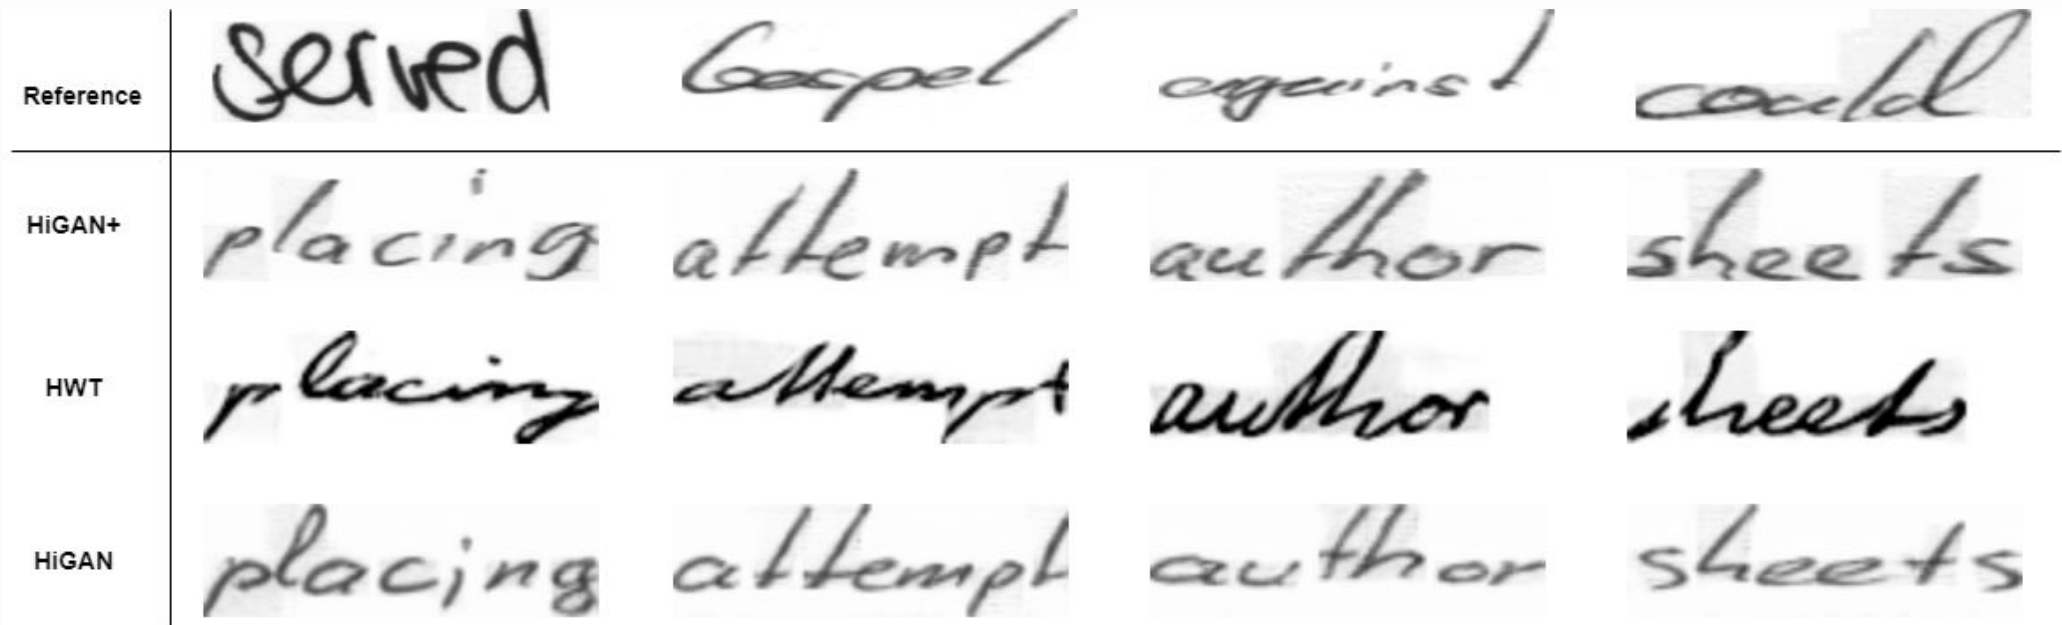 Reference served Gospel against could
HiGAN+ placing attempt author sheets
HWT placing attempt author sheets
HiGAN placing attempt author sheets